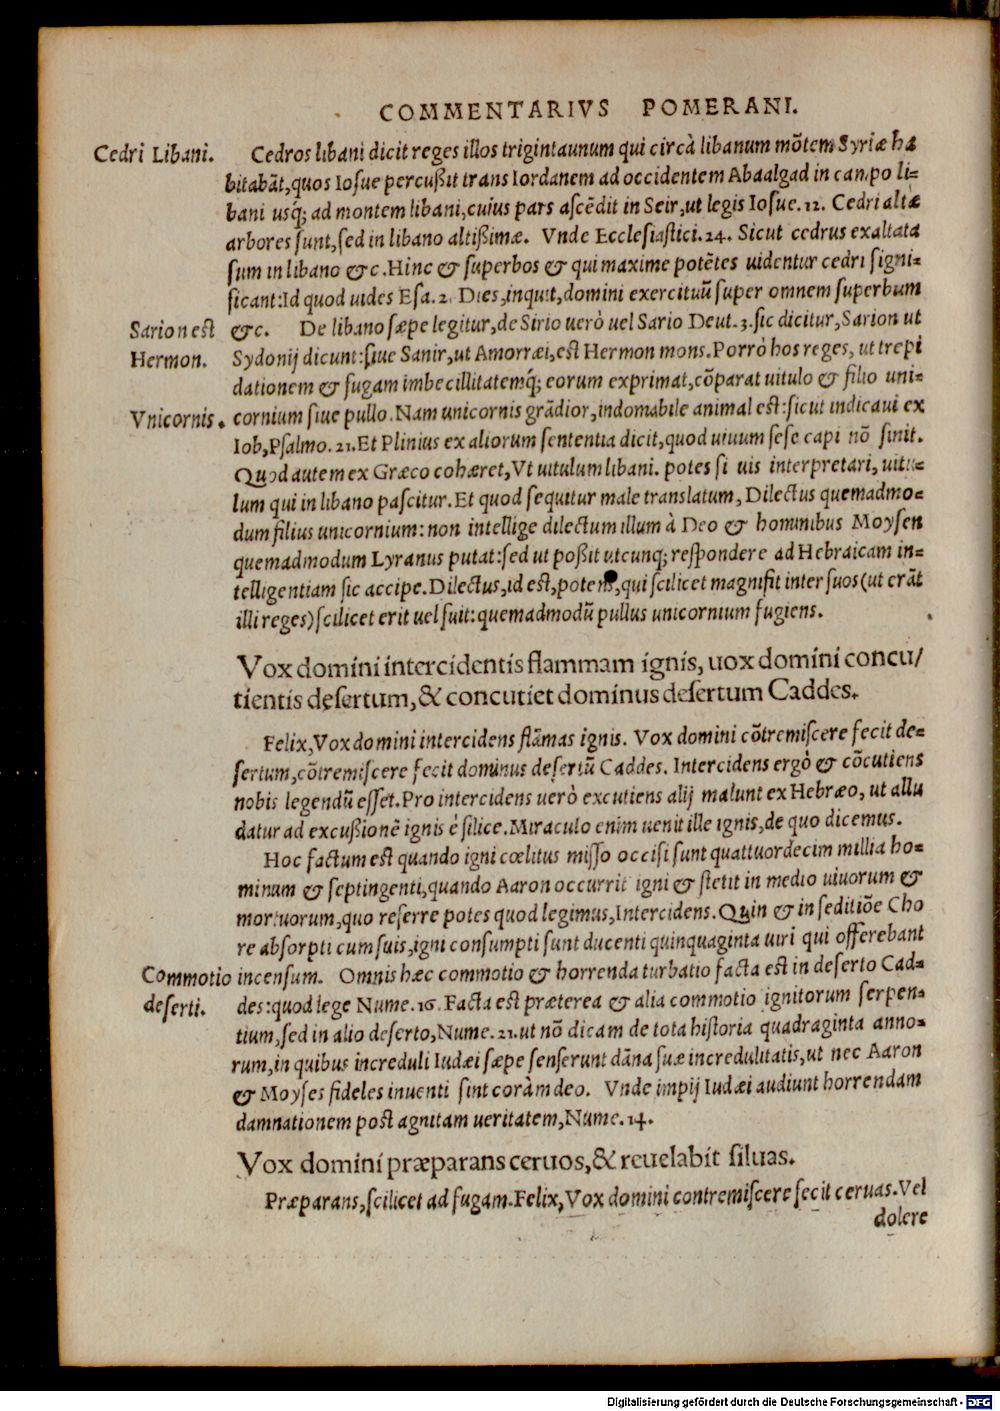 COMMENTARIVS POMERANI.
Cedri Libani. Cedros libani dicit reges illos trigintaunum qui circà libanum mõtem Syriæ ha
bitabãt, quos Iosue percußit trans Iordanem ad occidentem Abaalgad in campo li-
bani usq; ad montem libani, cuius pars ascẽdit in Seir, ut legis Iosue. 12. Cedri altæ
arbores sunt, sed in libano altißimæ. Vnde Ecclesiastici. 24. Sicut cedrus exaltata
sum in libano &c. Hinc & superbos & qui maxime potẽtes uidentur cedri signi-
ficant: Id quod uides Esa. 2. Dies, inquit, domini exercituũ super omnem superbum
Sarion est &c. De libano sæpe legitur, de Sirio uerò uel Sario Deut. 3. sic dicitur, Sarion ut
Hermon. Sydonij dicunt: siue Sanir, ut Amorræi, est Hermon mons. Porrò hos reges, ut trepi
dationem & fugam imbecillitatemq́; eorum exprimat, cõparat uitulo & filio uni-
Vnicornis. cornium siue pullo. Nam unicornis grãdior, indomabile animal est: sicut indicaui ex
Iob, Psalmo. 21. Et Plinius ex aliorum sententia dicit, quod uiuum sese capi nõ sinit.
Quod autem ex Græco cohæret, Vt uitulum libani. potes si uis interpretari, uitu-
lum qui in libano pascitur. Et quod sequitur male translatum, Dilectus quemadmo-
dum filius unicornium: non intellige dilectum illum à Deo & hominibus Moysen
quemadmodum Lyranus putat: sed ut poßit utcunq; respondere ad Hebraicam in-
telligentiam sic accipe. Dilectus, id est, potens, qui scilicet magnifit inter suos (ut erãt
illi reges) scilicet erit uel fuit: quemadmodũ pullus unicornium fugiens.
Vox domini intercidentis flammam ignis, uox domini concu/
tientis desertum, & concutiet dominus desertum Caddes.
Felix, Vox domini intercidens flãmas ignis. Vox domini cõtremiscere fecit de-
sertum, cõtremiscere fecit dominus desertũ Caddes. Intercidens ergò & cõcutiens
nobis legendũ esset. Pro intercidens uerò excutiens alij malunt ex Hebræo, ut allu
datur ad excußionẽ ignis è silice. Miraculo enim uenit ille ignis, de quo dicemus.
Hoc factum est quando igni cœlitus misso occisi sunt quattuordecim millia ho-
minum & septingenti, quando Aaron occurrit igni & stetit in medio uiuorum &
mortuorum, quo referre potes quod legimus, Intercidens. Quin & in seditiõe Cho
re absorpti cum suis, igni consumpti sunt ducenti quinquaginta uiri qui offerebant
Commotio incensum. Omnis hæc commotio & horrenda turbatio facta est in deserto Cad-
deserti. des: quod lege Nume. 16. Facta est præterea & alia commotio ignitorum serpen-
tium, sed in alio deserto, Nume. 21. ut nõ dicam de tota historia quadraginta anno-
rum, in quibus increduli Iudæi sæpe senserunt dãna suæ incredulitatis, ut nec Aaron
& Moyses fideles inuenti sint coràm deo. Vnde impij Iudæi audiunt horrendam
damnationem post agnitam ueritatem, Nume. 14.
Vox domini præparans ceruos, & reuelabit siluas.
Præparans, scilicet ad fugam. Felix, Vox domini contremiscere fecit ceruas. Vel
dolere
Digitalisierung gefördert durch die Deutsche Forschungsgemeinschaft - DFG